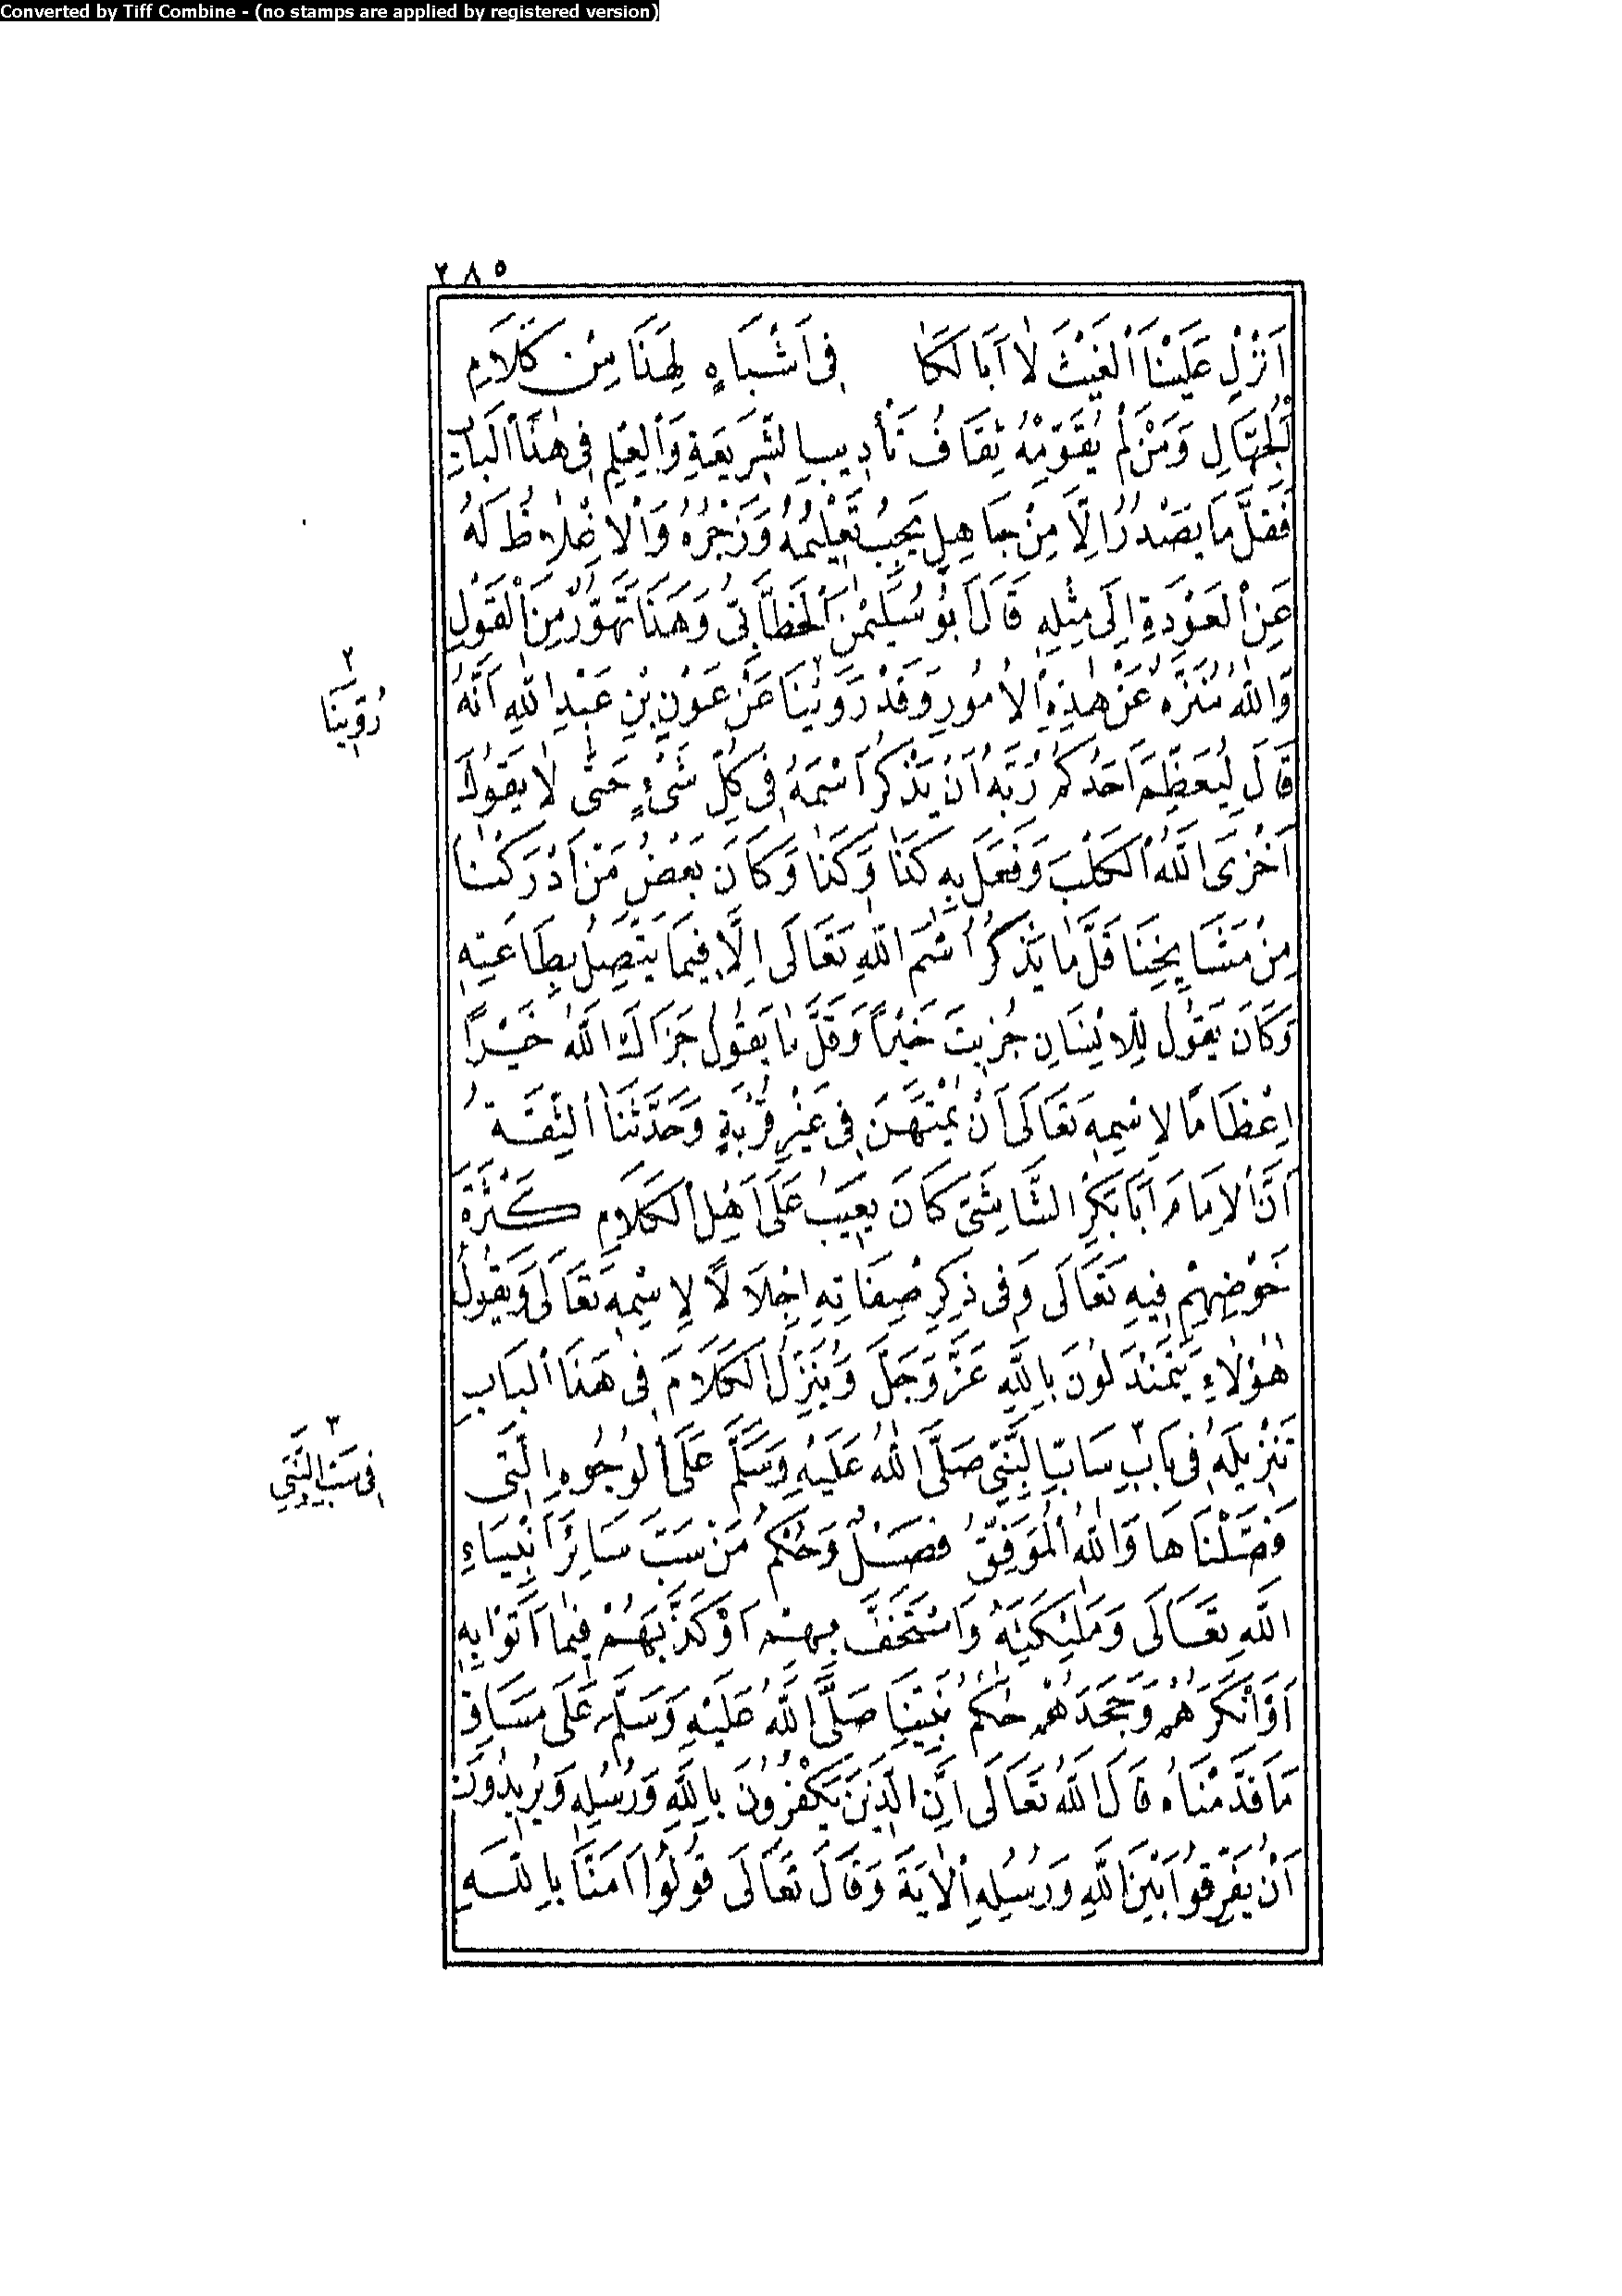 Converted by Tiff Combine - (no stamps are applied by registered version)
٢٨٥
اَنْزِلْ عَلَيْنَا الْغَيْثَ لَا اَبَا لَكَا فِى اَشْبَاهٍ لِهَذَا مِنْ كَلَامِ
الْجُهَّالِ وَمَنْ لَمْ يُقَوِّمْهُ ثِقَافُ تَأْدِيبِ الشَّرِيعَةِ وَالْعِلْمِ فِى هٰذَا الْبَابِ
فَقَلَّ مَا يَصْدُرُ اِلَّا مِنْ جَاهِلٍ يَجِبُ تَعْلِيمُهُ وَزَجْرُهُ وَالْاِغْلَاظُ لَهُ
عَنِ الْعَوْدَةِ اِلَى مِثْلِهِ قَالَ اَبُو سُلَيْمٰنَ الْخَطَّابِىُّ وَهَذَا تَهَوُّرٌ مِنَ الْقَوْلِ
وَاللّٰهُ مُنَزَّهٌ عَنْ هٰذِهِ الْاُمُورِ وَقَدْ رَوَيْنَا عَنْ عَوْنِ بْنِ عَبْدِ اللّٰهِ اَنَّهُ
٢
رُوِّينَا
قَالَ لِيُعَظِّمْ اَحَدُكُمْ رَبَّهُ اَنْ يَذْكُرَ اسْمَهُ فِى كُلِّ شَىْءٍ حَتّٰى لَا يَقُولَ
اَخْزَى اللّٰهُ الْكَلْبَ وَفَعَلَ بِهِ كَذَا وَكَذَا وَكَانَ بَعْضُ مَنْ اَدْرَكْنَا
مِنْ مَشَايِخِنَا قَلَّ مَا يَذْكُرُ اسْمَ اللّٰهِ تَعَالَى اِلَّا فِيمَا يَتَّصِلُ بِطَاعَتِهِ
وَكَانَ يَقُولُ لِلْاِنْسَانِ جُزِيتَ خَيْراً وَقَلَّ مَا يَقُولُ جَزَاكَ اللّٰهُ خَيْرًا
اِعْظَامًا لِاسْمِهِ تَعَالَى اَنْ يُمْتَهَنَ فِى غَيْرِ قُرْبَةٍ وَحَدَّثَنَا الثِّقَةُ
اَنَّ الْاِمَامَ اَبَا بَكْرٍ الشَّاشِىَّ كَانَ يَعِيبُ عَلَى اَهْلِ الْكَلَامِ كَثْرَةَ
خَوْضِهِمْ فِيهِ تَعَالَى وَفِى ذِكْرِ صِفَاتِهِ اِجْلَالًا لِاسْمِهِ تَعَالَى وَيَقُولُ
هٰؤُلَاءِ يَتَمَنْدَلُونَ بِاللّٰهِ عَزَّ وَجَلَّ وَيُنَزِّلُ الْكَلَامَ فِى هَذَا الْبَابِ
تَنْزِيلَهُ فِى بَابِ سَابِّ النَّبِىِّ صَلَّى اللّٰهُ عَلَيْهِ وَسَلَّمَ عَلَى الْوُجُوهِ الَّتِى
٣
فِى سَبِّ النَّبِىِّ
فَصَّلْنَاهَا وَاللّٰهُ الْمُوَفِّقُ فَصْلٌ وَحُكْمُ مَنْ سَبَّ سَائِرَ اَنْبِيَاءِ
اللّٰهِ تَعَالَى وَمَلٰئِكَتِهِ وَاسْتَخَفَّ بِهِمْ اَوْ كَذَّبَهُمْ فِيمَا اَتَوْا بِهِ
اَوْ اَنْكَرَهُمْ وَجَحَدَهُمْ حُكْمُ نَبِيِّنَا صَلَّى اللّٰهُ عَلَيْهِ وَسَلَّمَ عَلَى مَسَاقِ
مَا قَدَّمْنَاهُ قَالَ اللّٰهُ تَعَالَى اِنَّ الَّذِينَ يَكْفُرُونَ بِاللّٰهِ وَرُسُلِهِ وَيُرِيدُونَ
اَنْ يُفَرِّقُوا بَيْنَ اللّٰهِ وَرُسُلِهِ الْاٰيَةَ وَقَالَ تَعَالَى قُولُوا اٰمَنَّا بِاللّٰهِ